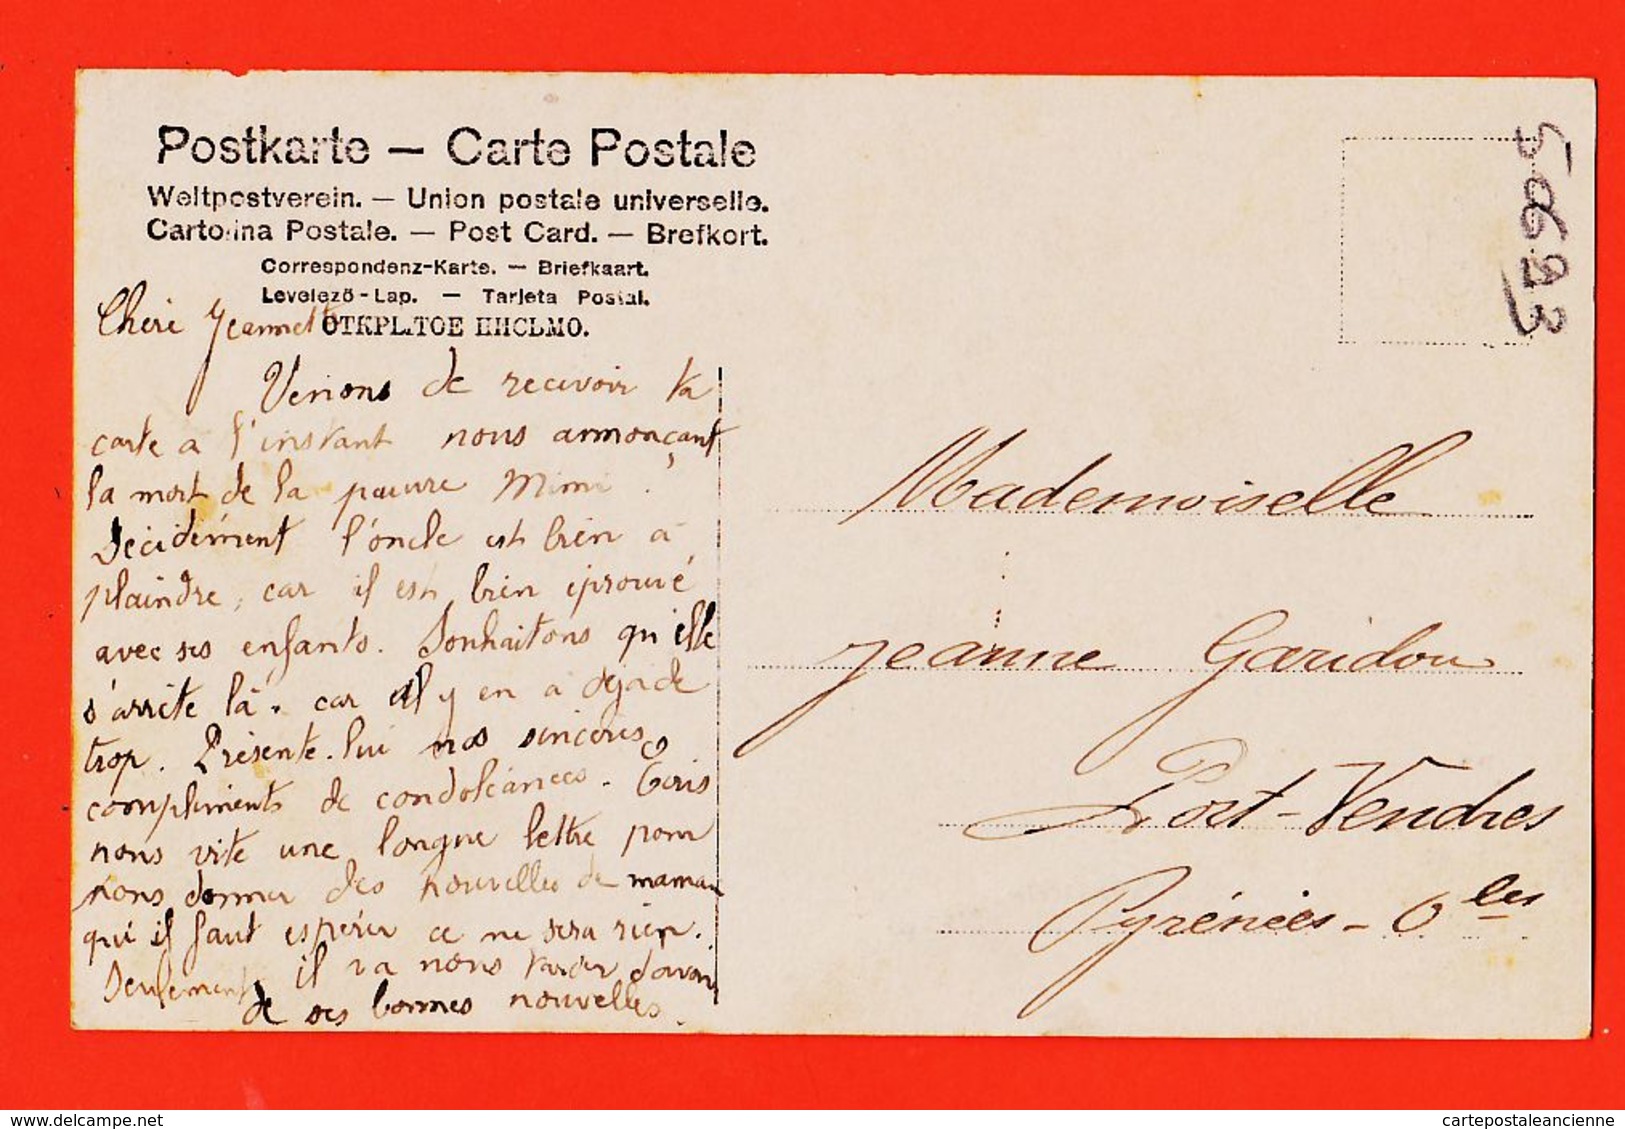 Postkarte — Carte Postale
Weltpostverein. — Union postale universelle.
Cartolina Postale. — Post Card. — Brefkort.
Correspondenz-Karte. — Briefkaart.
Levelezö-Lap. — Tarjeta Postal.
ОТКРЫТОЕ ПИСЬМО.
Chère Jeannette
Venons de recevoir ta
carte a l'instant nous annonçant
la mort de la pauvre Mimi.
Décidément l'oncle est bien à
plaindre, car il est bien éprouvé
avec ses enfants. Souhaitons qu'elle
s'arrête là. car il y en a déja de
trop. Présente-lui nos sincères
compliments de condoléances. Ecris
nous vite une longue lettre pour
nous donner des nouvelles de maman
qui il faut espérer ce ne sera rien.
Seulement il va nous tarder d'avoir
de ses bonnes nouvelles.
Mademoiselle
Jeanne Garidou
Port-Vendres
Pyrénées-Oles
cartepostaleancienne.com
cartepostaleancienne